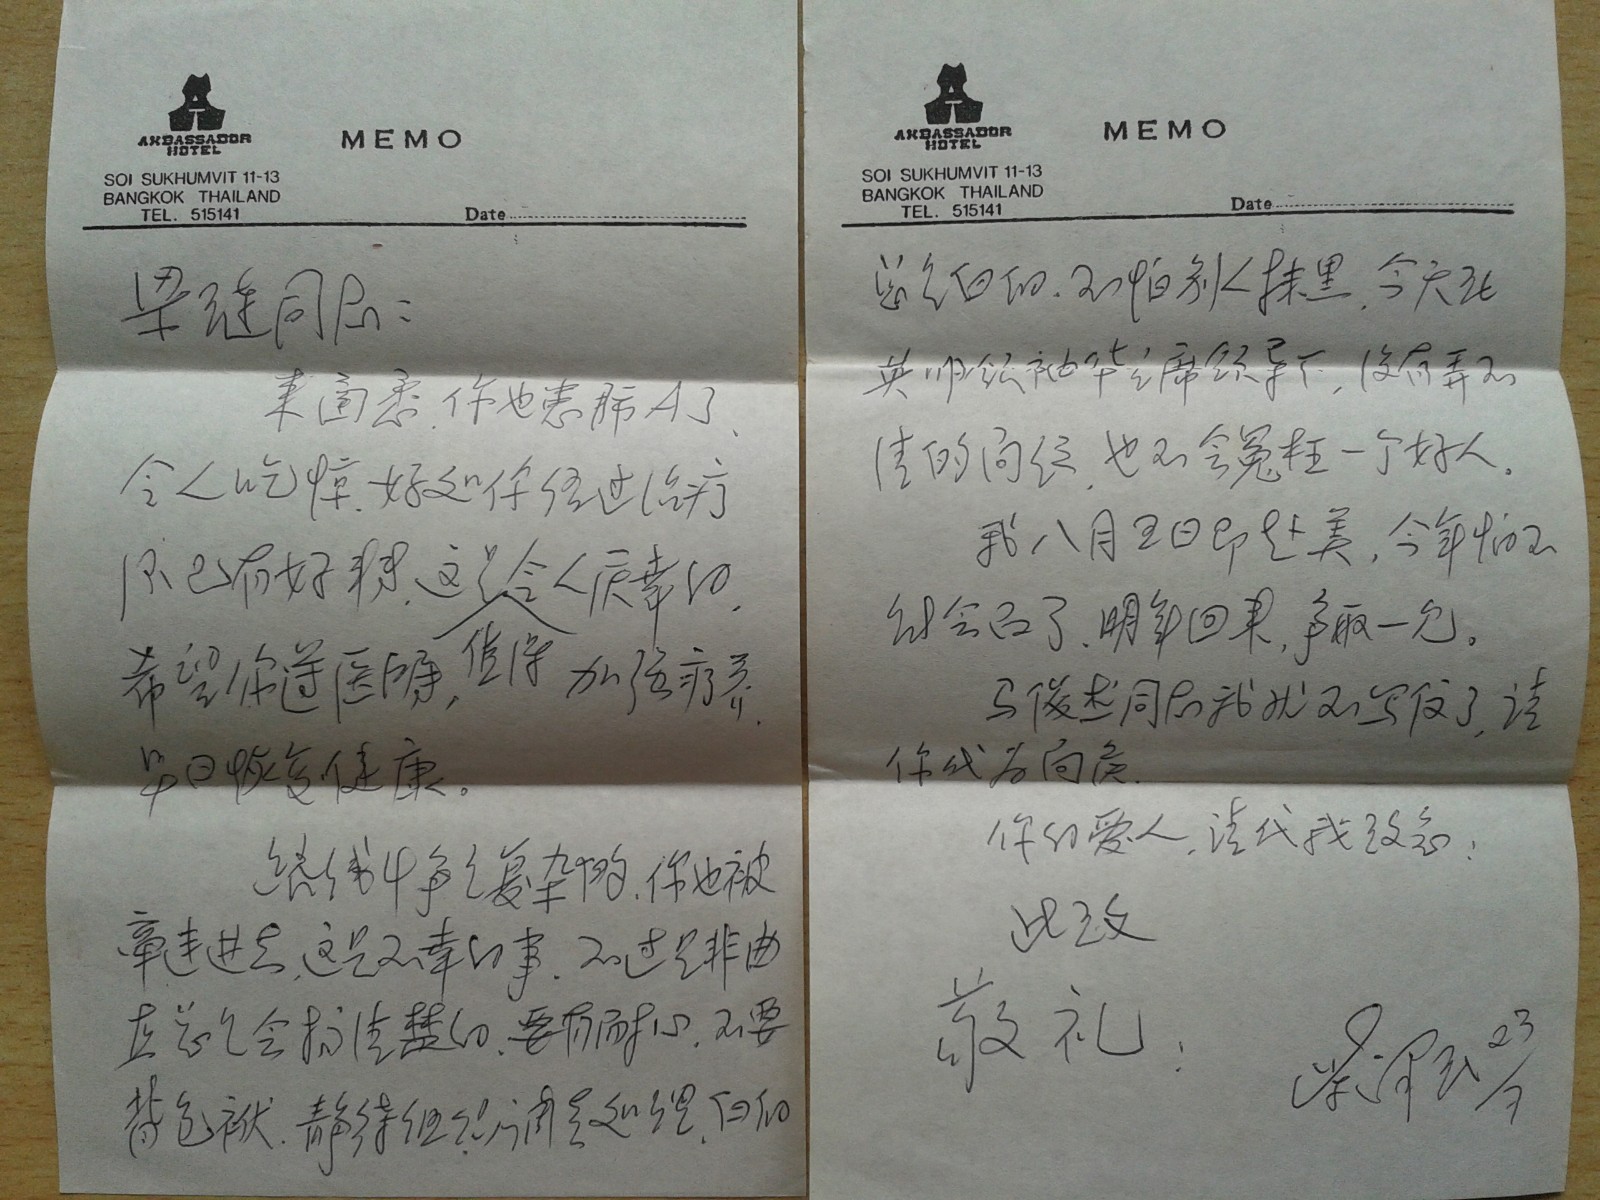 AMBASSADOR
HOTEL
MEMO
SOI SUKHUMVIT 11-13
BANGKOK THAILAND
TEL. 515141
Date
梁琏同志：
来函悉，你也患肺A了，
令人吃惊，好如你经过治疗
后已有好转，这是令人庆幸的，
希望你遵医嘱，值得 加强疗养，
早日恢复健康。
路线斗争是复杂的，你也被
牵连进去，这是不幸的事，不过是非曲
直总是会搞清楚的，要有耐心，不要
背包袱，静待组织调查处理，白的
AMBASSADOR
HOTEL
MEMO
SOI SUKHUMVIT 11-13
BANGKOK THAILAND
TEL. 515141
Date
总是白的，不怕别人抹黑，今天在
英明领袖华主席领导下，没有弄不
清的问题，也不会冤枉一个好人。
我八月五日即赴美，今年怕不
能会面了，明年回来，争取一见。
马俊杰同志我就不写信了，请
你代为问候。
你的爱人，请代我致意！
此致
敬礼！
柴泽民 23/7